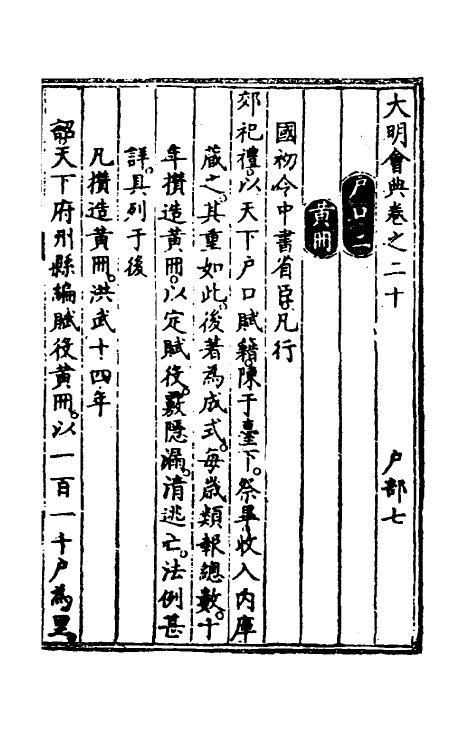 大明會典卷之二十　戶部七
戶口二
黃冊
國初令中書省臣凡行
郊祀禮。以天下戶口賦籍。陳于臺下。祭畢收入內庫
藏之。其重如此。後著為成式。每歲類報總數。十
年攢造黃冊。以定賦役。覈隱漏。清逃亡。法例甚
詳。具列于後
凡攢造黃冊。洪武十四年
詔天下府州縣編賦役黃冊。以一百一十戶為里。